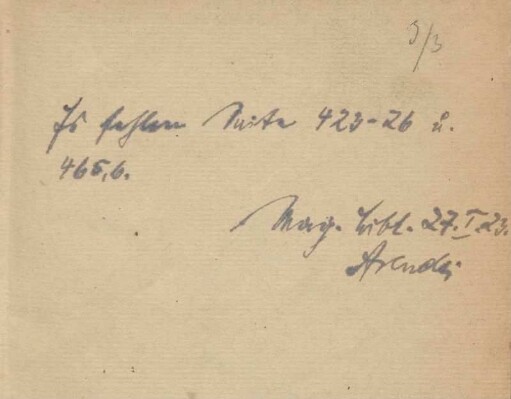 9/3
Es fehlen Seite 423-26 u.
465,6.
Mag. Bibl. 27.I.23.
Arendt